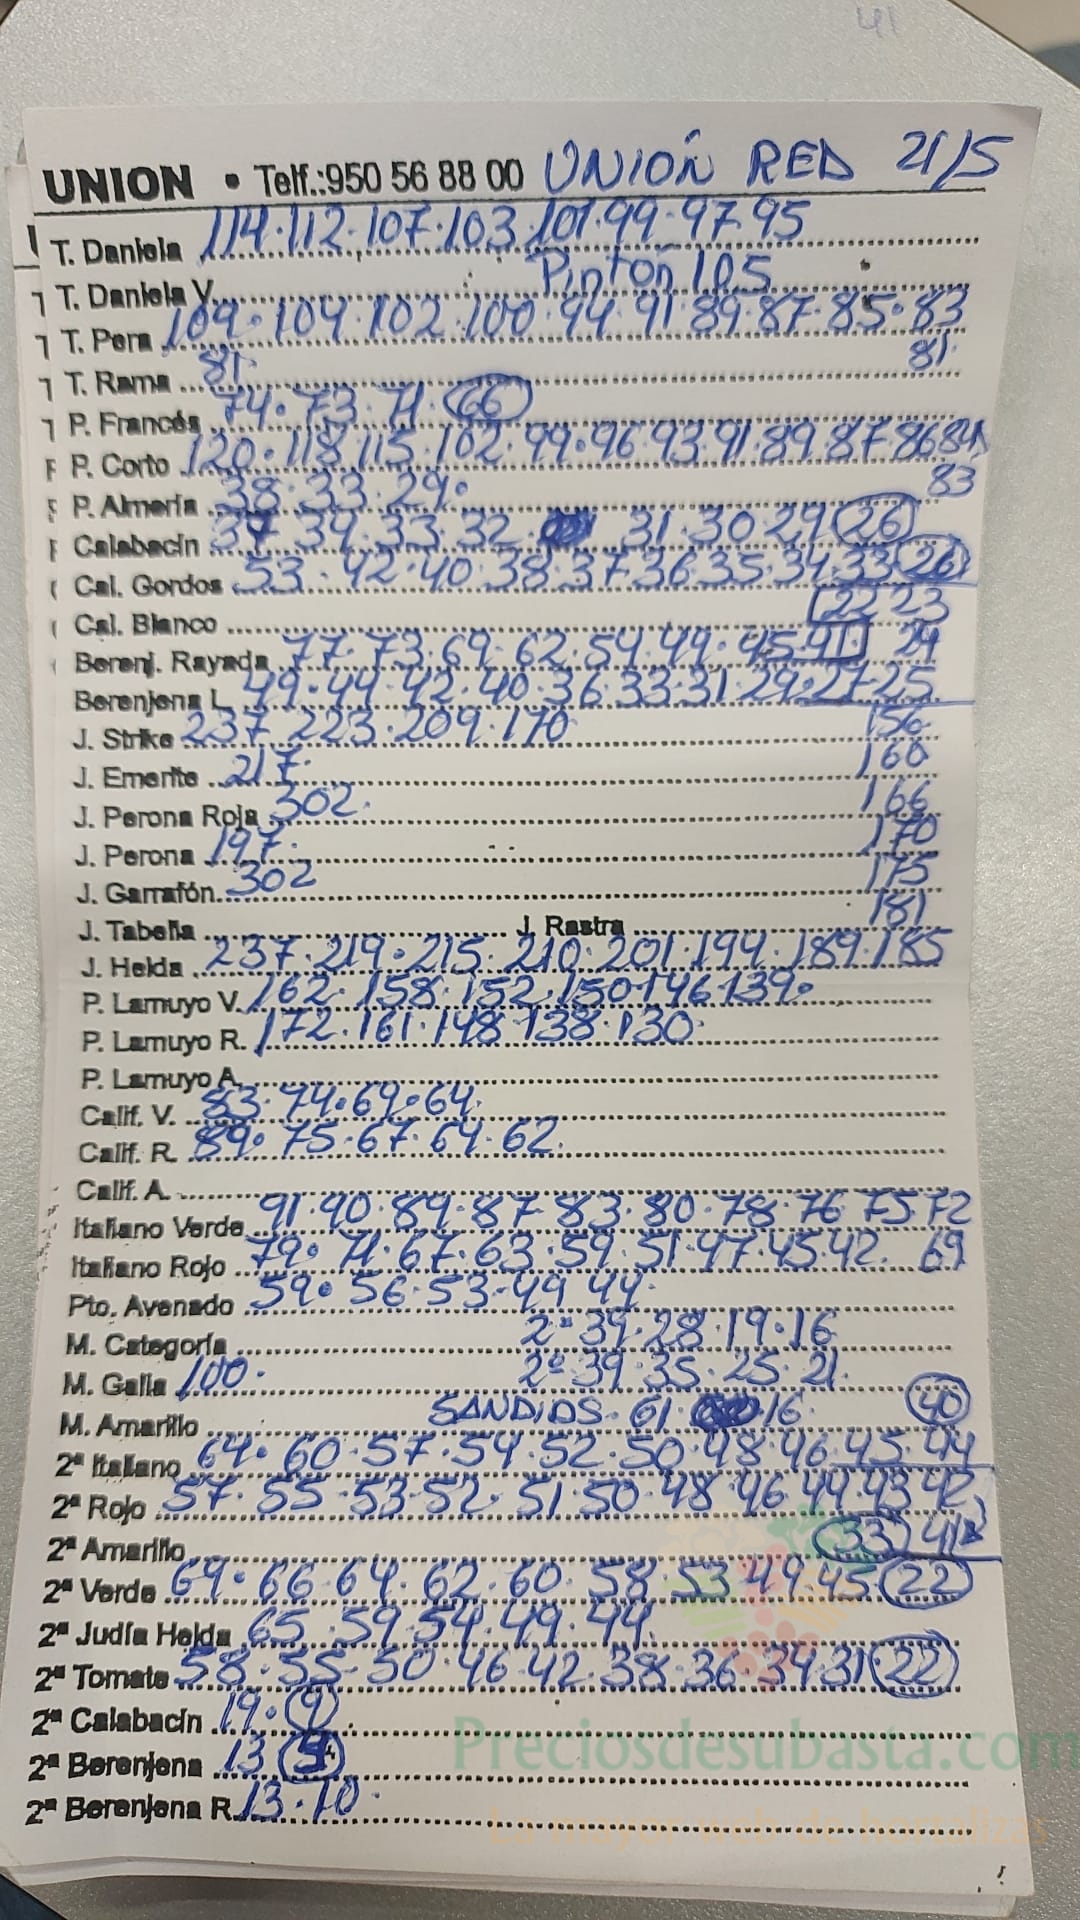 41
UNION • Telf.:950 56 88 00 UNIÓN RED 21/5
T. Daniela 114.112.107.103.101.99.97.95
T. Daniela V. Pintón 105
T. Pera 109.104.102.100.94.91.89.87.85.83
T. Rama 81. 81.
P. Francés 74.73.71.(66)
P. Corto 120.118.115.102.99.96.93.91.89.87.86 84
P. Almería 38.33.29. 83
Calabacín 37 34.33.32. 31.30.29 (26)
Cal. Gordos 53.42.40.38.37 36 35.34.33 (26)
Cal. Blanco 22 23
Berenj. Rayada 77.73.69.62.54.49.45.41 24
Berenjena L. 49.44.42.40.36.33.31.29.27.25
J. Strike 237 223.209.170 156
J. Emerite 217. 160
J. Perona Roja 302. 166
J. Perona 197. 170
J. Garrafón 302 175
J. Tabella J. Rastra 181
J. Helda 237.219.215.210.201.194.189.185
P. Lamuyo V. 162.158.152.150.146.139.
P. Lamuyo R. 172.161.148 138.130
P. Lamuyo A.
Calif. V. 83.74.69.64.
Calif. R. 89.75.67.64.62.
Calif. A.
Italiano Verde 91.90.89.87.83.80.78.76 75.72
Italiano Rojo 79.71.67.63.59.51.47.45.42. 69
Pto. Avenado 59.56.53.49 44.
M. Categoría 2ª 39.28.19.16
M. Galia 100. 2º 39.35.25.21.
M. Amarillo SANDIAS. 61. 16. (40)
2ª Italiano 64.60.57.54.52.50.48.46.45.44
2ª Rojo 57.55.53.52.51.50.48 46 44.43 42
2ª Amarillo (33) 41
2ª Verde 69.66 64.62.60.58.53.49.45 (22)
2ª Judía Helda 65.59.54.49.44.
2ª Tomate 58.55.50.46.42.38.36.34 31 (22)
2ª Calabacín 19.(9).
2ª Berenjena 13
2ª Berenjena R. 13.10.
Preciosdesubasta.com
La mayor web de hortalizas